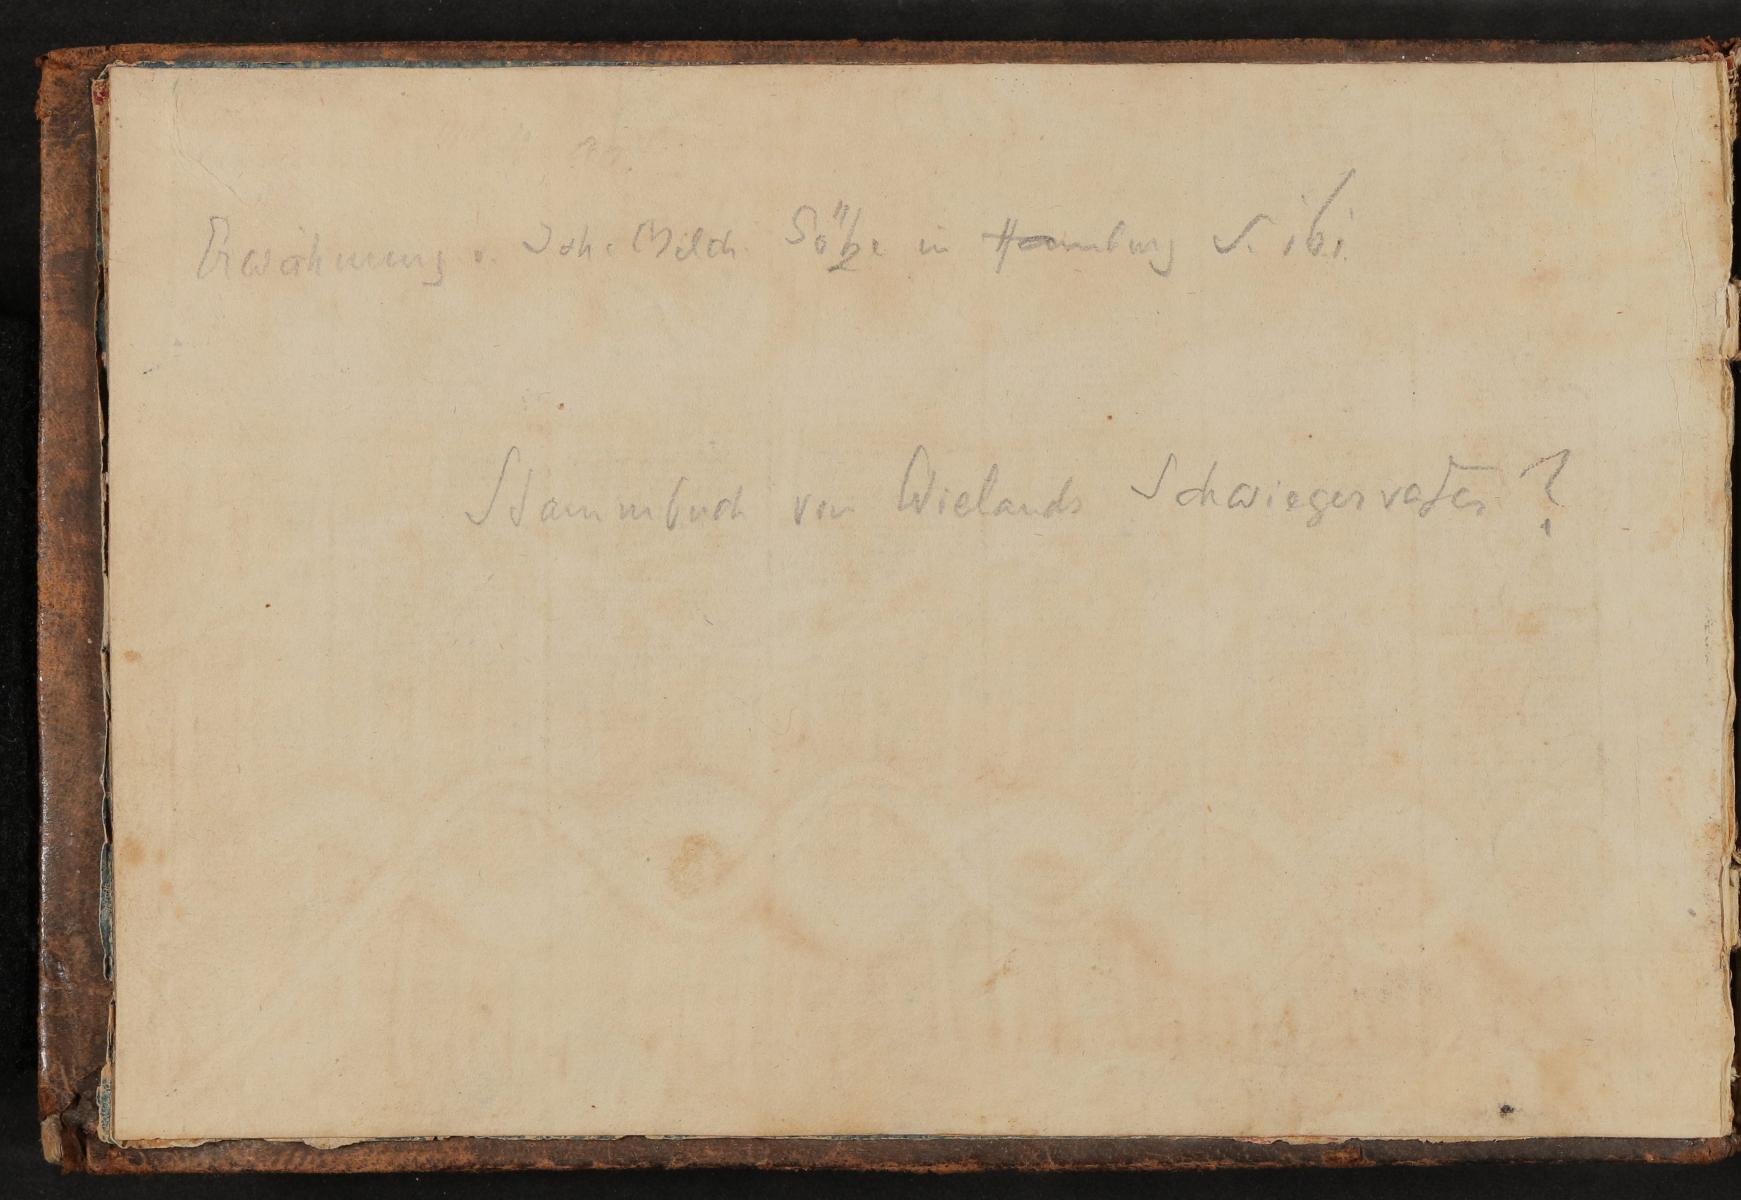 Erwähnung v. Joh. Melch. Götze in Hamburg S. 161
Stammbuch von Wielands Schwiegervater?